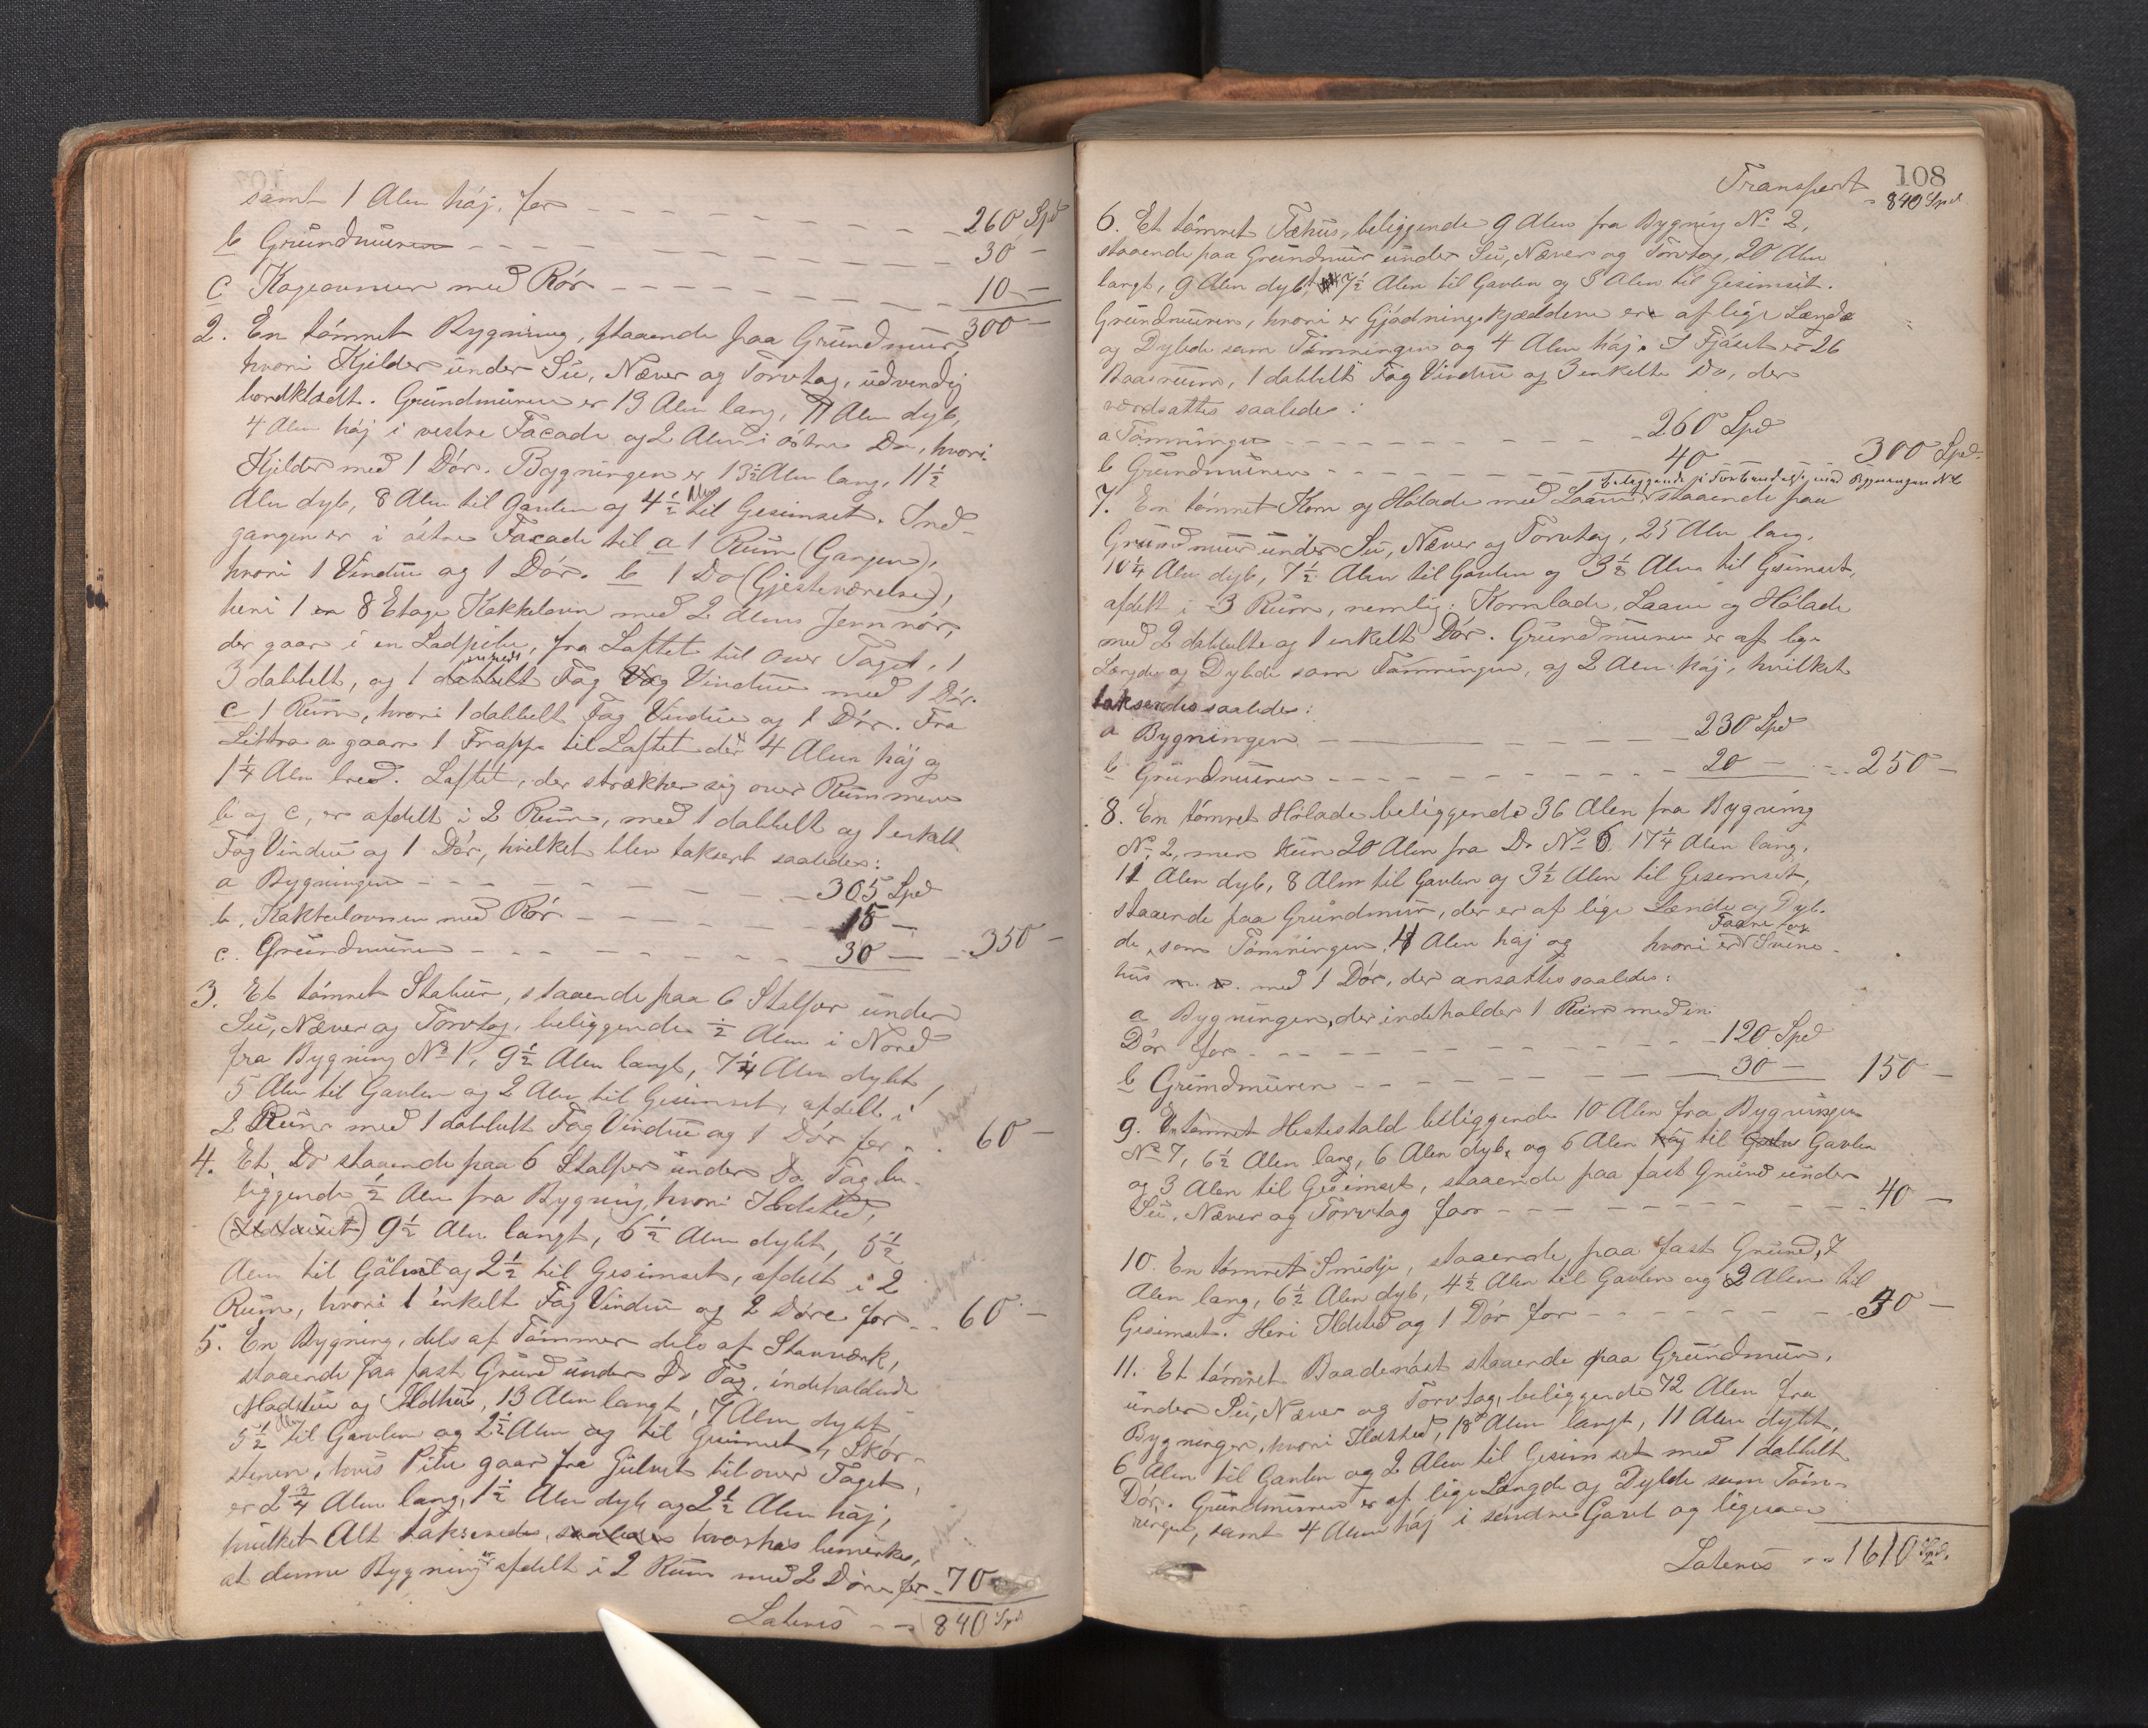 samt 1 Alen høj, for - - - - - - - 260 Spd
b Grundmuren - - - - - - - - 30 -
c Kogeovnen med Rør - - - - - - - 10 -
300 -
2. En tømret Bygning, staaende paa Grundmur,
hvori Kjelder under Su, Næver og Torvtag, udvendig
bordklædt. Grundmuren er 13 Alen lang, 11 Alen dyb,
4 Alen høj i vestre Facade og 2 Alen i østre Do, hvori
Kjelder med 1 Dør. Bygningen er 13½ Alen lang, 11½
Alen dyb, 8 Alen til Gavlen og 4½ Alen til Gesimset. Ind-
gangen er i østre Facade til a 1 Rum (Gangen),
hvori 1 Vindu og 1 Dør. b 1 Do (Gjesteværelse),
heri 1 en 8 Etages Kakkelovn med 2 Alens Jernrør,
der gaar i en Lodpibe, fra Loftet til over Taget, 1
3 dobbelt, og 1 dobbelt enkelt Fag Vindu med 1 Dør.
c 1 Rum, hvori 1 dobbelt Fag Vindu og 1 Dør. Fra
Littra a gaar 1 Trappe til Loftet der 4 Alen høj og
1¼ Alen bred. Loftet, der strækker sig over Rummene
b og c, er afdelt i 2 Rum, med 1 dobbelt og 1 enkelt
Fag Vindu og 1 Dør, hvilket blev taksert saaledes:
a Bygningen - - - - - - - 305 Spd
b. Kakkelovnen med Rør - - - - - 15 -
c. Grundmuren - - - - - - - 30 - - 350 -
3. Et tømret Stabur, staaende paa 6 Stolper under
Su, Næver og Torvtag, beliggende ½ Alen i Nord
fra Bygning No 1, 9½ Alen langt, 7¼ Alen dybt,
5 Alen til Gavlen og 2 Alen til Gesimset, afdelt i
2 Rum med 1 dobbelt Fag Vindu og 1 Dør for - 60 -
4. Et Do staaende paa 6 Stolper under Do Tag be-
liggende ½ Alen fra Bygning, hvori Ildsted,
(Ildhuset) 9½ Alen langt, 6½ Alen dybt, 5½
Alen til Gavlen og 2½ til Gesimset, afdelt i 2
Rum, hvori 1 enkelt Fag Vindu og 2 Døre for - 60 -
5. En Bygning, dels af Tømmer dels af Stavværk,
staaende paa fast Grund under Do Tag, indeholdende
Madstu og Ildhus, 13 Alen langt, 7 Alen dybt
5½ Alen til Gavlen og 2½ Alen og til Gesimset, Skor-
stenen, hvis Pibe gaar fra Gulvet til over Taget,
er 2¾ Alen lang, 1½ Alen dyb og 2½ Alen høj,
hvilket Alt taksertes, saaledes hvorhos bemerkes,
at denne Bygning er afdelt i 2 Rum med 2 Døre for - 70
Lateris - - 840 Spd
108
Transport
- 840 Spd.
6. Et tømret Fæhus, beliggende 9 Alen fra Bygning No 2,
staaende paa Grundmur under Su, Næver og Torvtag, 20 Alen
langt, 9 Alen dybt, 7½ Alen til Gavlen og 3 Alen til Gesimset.
Grundmuren, hvori er Gjødningskjælderen er af lige Længde
og Dybde som Tømringen og 4 Alen høj. I Fjøset er 26
Baasrum, 1 dobbelt Fag Vindu og 3 enkelte Do, der
værdsattes saaledes:
a Tømringen - - - - - - - 260 Spd
b Grundmuren - - - - - - - 40 - 300 Spd.
beliggende i Forbindelse med Bygningen No 6
7. En tømret Korn og Hølade med Laave staaende paa
Grundmur under Su, Næver og Torvtag, 25 Alen lang,
10¼ Alen dyb, 7½ Alen til Gavlen og 3½ Alen til Gesimset,
afdelt i 3 Rum, nemlig: Kornlade, Laave og Hølade
med 2 dobbelte og 1 enkelt Dør. Grundmuren er af lige
Længde og Dybde som Tømringen, og 2 Alen høj, hvilket
taksertes saaledes:
a Bygningen - - - - - - - 230 Spd
b Grundmuren - - - - - - - 20 - - 250 -
8. En tømret Hølade beliggende 36 Alen fra Bygning
No 2, men kun 20 Alen fra Do No 6. 17¼ Alen lang,
11 Alen dyb, 8 Alen til Gavlen og 3½ Alen til Gesimset,
staaende paa Grundmur, der er af lige Længde og Dyb-
de, som Tømringen, 4 Alen høj og hvori er Faare og Svine-
hus m. v. med 1 Dør, der ansattes saaledes:
a Bygningen, der indeholder 1 Rum med en
Dør for - - - - - - - - 120 Spd
b Grundmuren - - - - - - - 30 - 150 -
9. En tømret Hestestald beliggende 10 Alen fra Bygningen
No 7, 6½ Alen lang, 6 Alen dyb, og 6 Alen høj til Gavlen
og 3 Alen til Gesimset, staaende paa fast Grund under
Su, Næver og Torvtag for - - - - - - - 40 -
10. En tømret Smidje, staaende paa fast Grund, 7
Alen lang, 6½ Alen dyb, 4½ Alen til Gavlen og 2 Alen til
Gesimset. Heri Ildsted og 1 Dør for - - - - - - 30 -
11. Et tømret Baadenøst staaende paa Grundmur,
under Su, Næver og Torvtag, beliggende 72 Alen fra
Bygningen, hvori Ildsted, 18 Alen langt, 11 Alen dybt,
6 Alen til Gavlen og 2 Alen til Gesimset med 1 dobbelt
Dør. Grundmuren er af lige Længde og Dybde som Tøm-
ringen, samt 4 Alen høj i søndre Gavl og ligesaa
Lateris - - 1610 Spd.